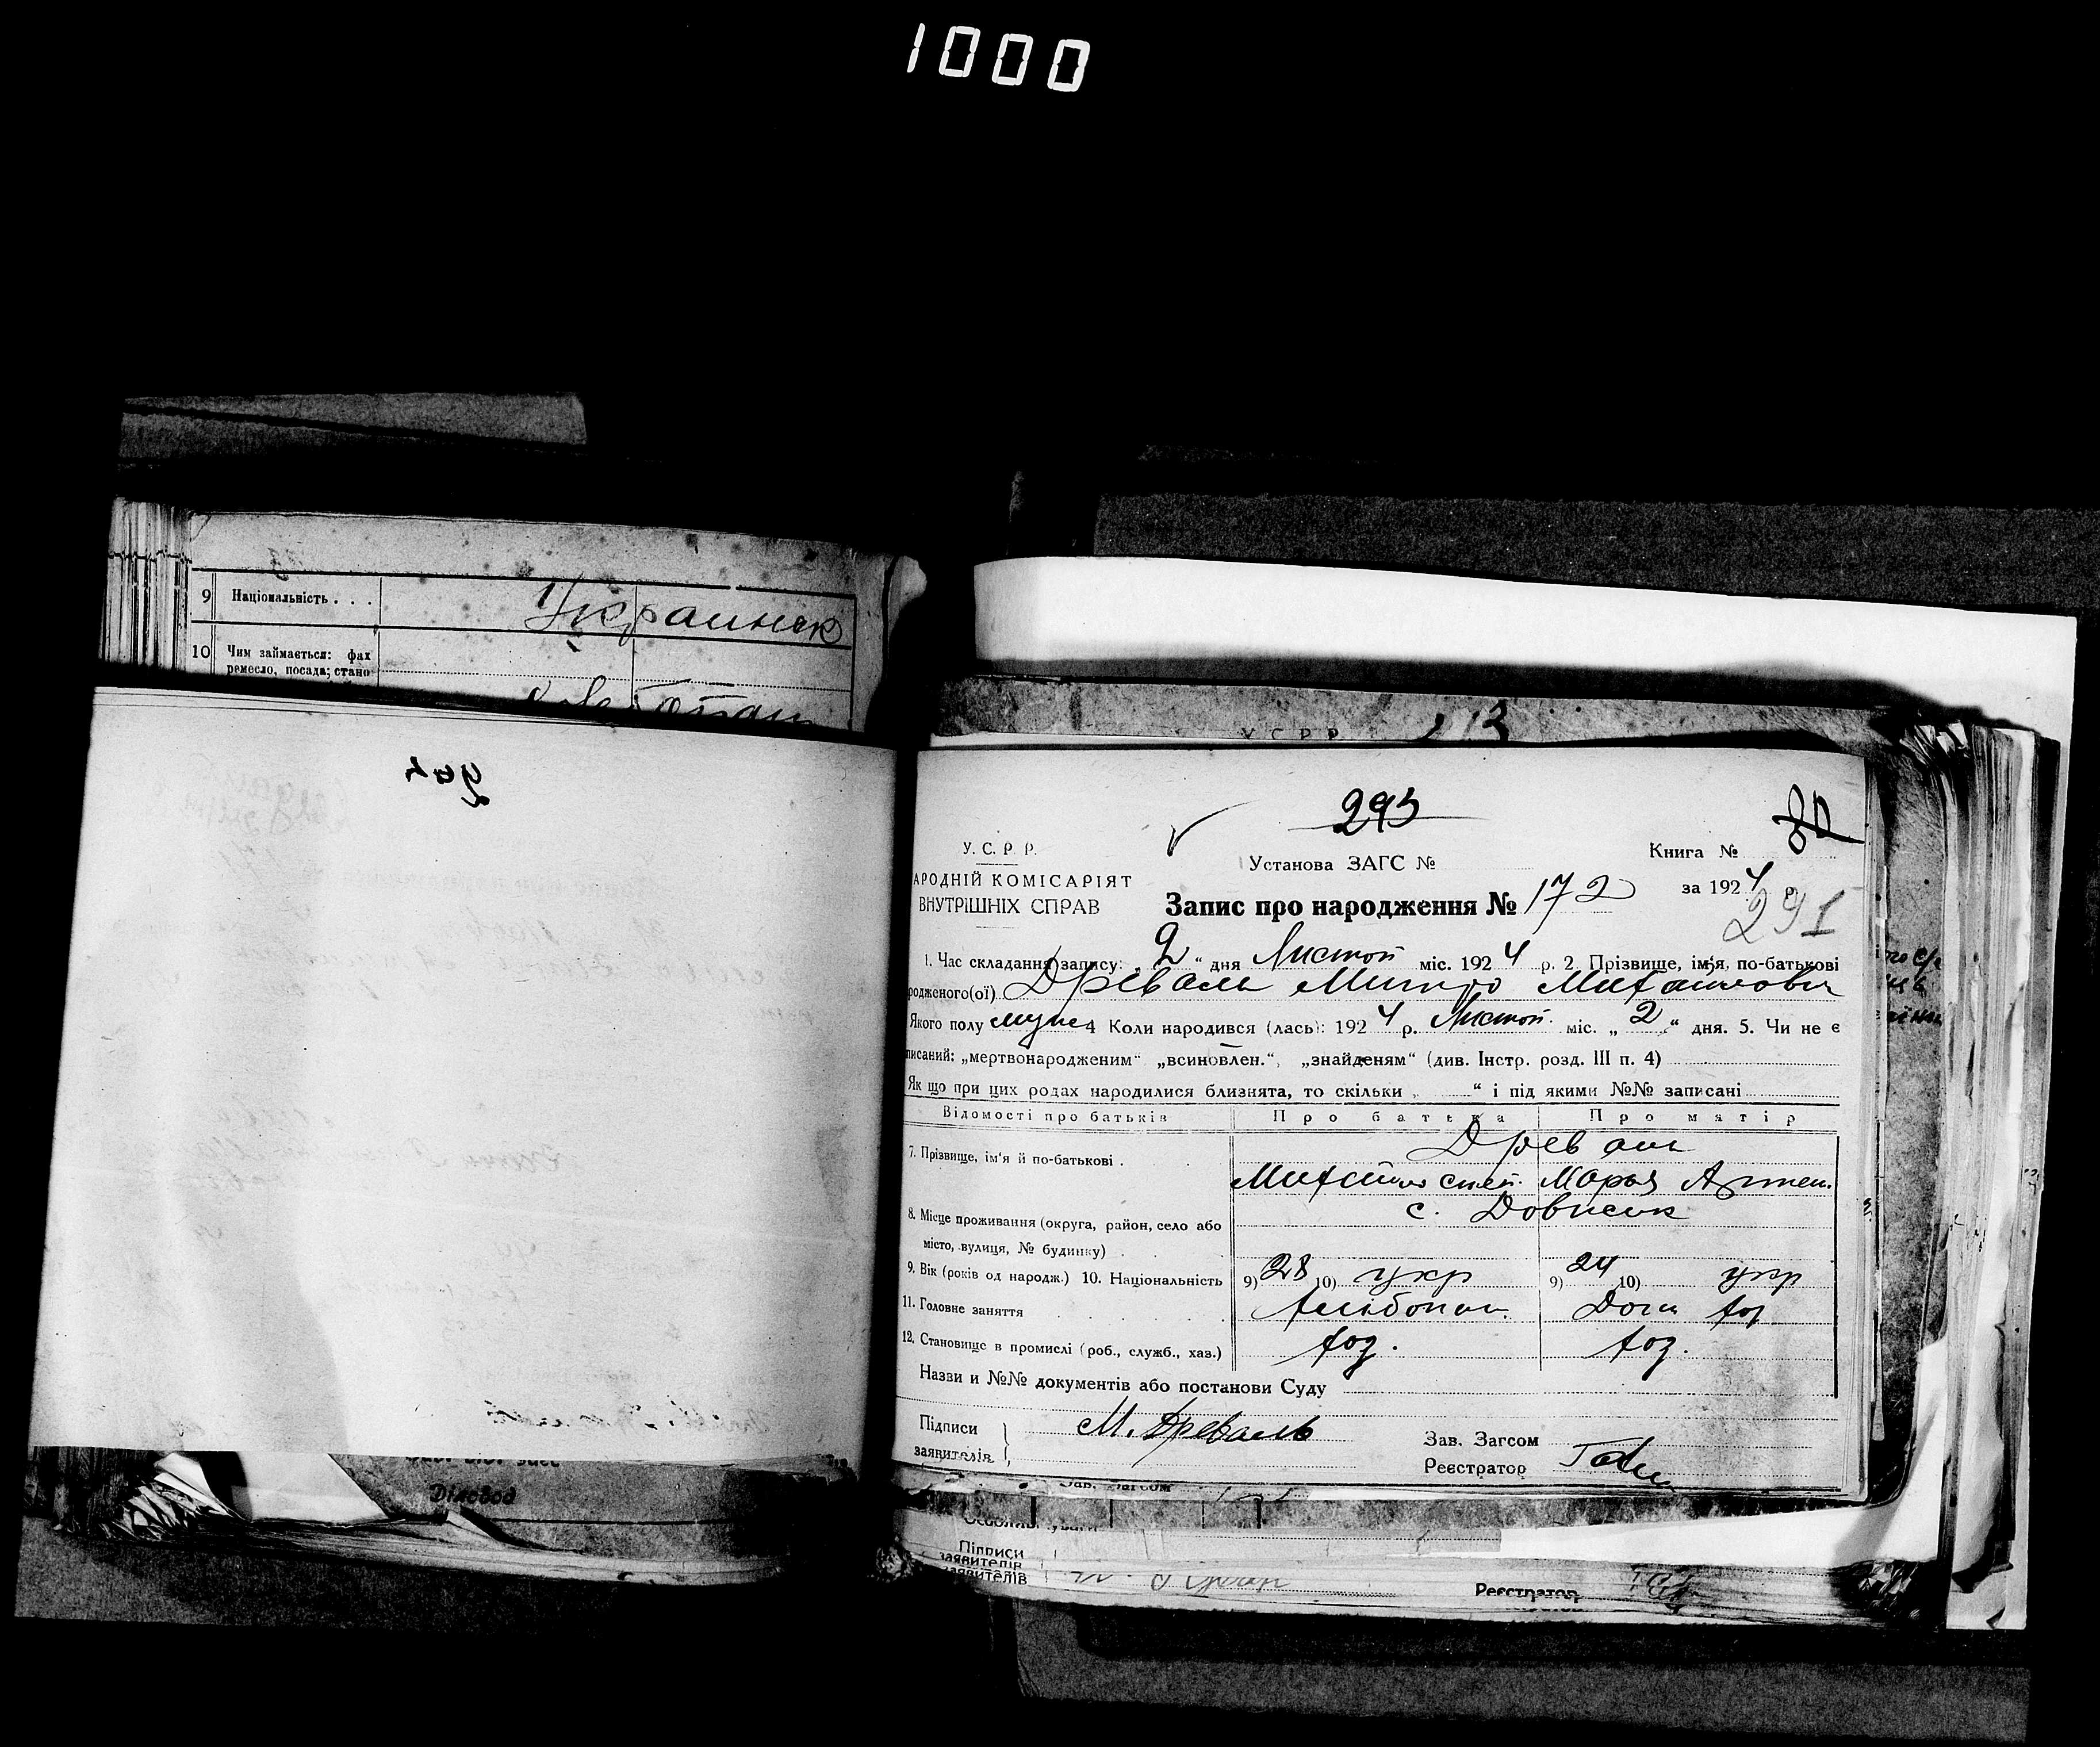 1000
9 Національність . . . Украинск
10 Чим займається: фах
ремесло, посада; стано
Діловод
У С Р Р
293
У. С. Р. Р.
Установа ЗАГС №
Книга №
АРОДНІЙ КОМІСАРІЯТ
ВНУТРІШНІХ СПРАВ
Запис про народження № 172
за 1924 р.
291
1. Час складання запису: „ 2 “ дня Листоп міс. 1924 р. 2. Прізвище, ім'я, по-батькові
родженого(ої) Древаль Митро Михайлович
Якого полу муж 4 Коли народився (лась): 1924 р. Листоп. міс. „ 2 “ дня. 5. Чи не є
писаний: „мертвонародженим“ „всиновлен.“, „знайденям“ (див. Інстр. розд. III п. 4)
Як що при цих родах народилися близнята, то скільки „ “ і під якими №№ записані
Відомості про батьків Про батька Про матір
7. Прізвище, ім'я й по-батькові . Древаль
Михайло Степ. Марья Артем.
8. Місце проживання (округа, район, село або с.
місто, вулиця, № будинку) .
9. Вік (років од народж.) 10. Національність 9) 28 10) укр 9) 24 10) укр
11. Головне заняття Хлібопаш. Дом хоз
12. Становище в промислі (роб., служб., хаз.) хоз. хоз.
Назви и №№ документів або постанови Суду
Підписи
заявителів М. Древаль
Зав. Загсом
Реєстратор
Зав. Загсом
Підписи
заявителів
заявителів
Реєстратор